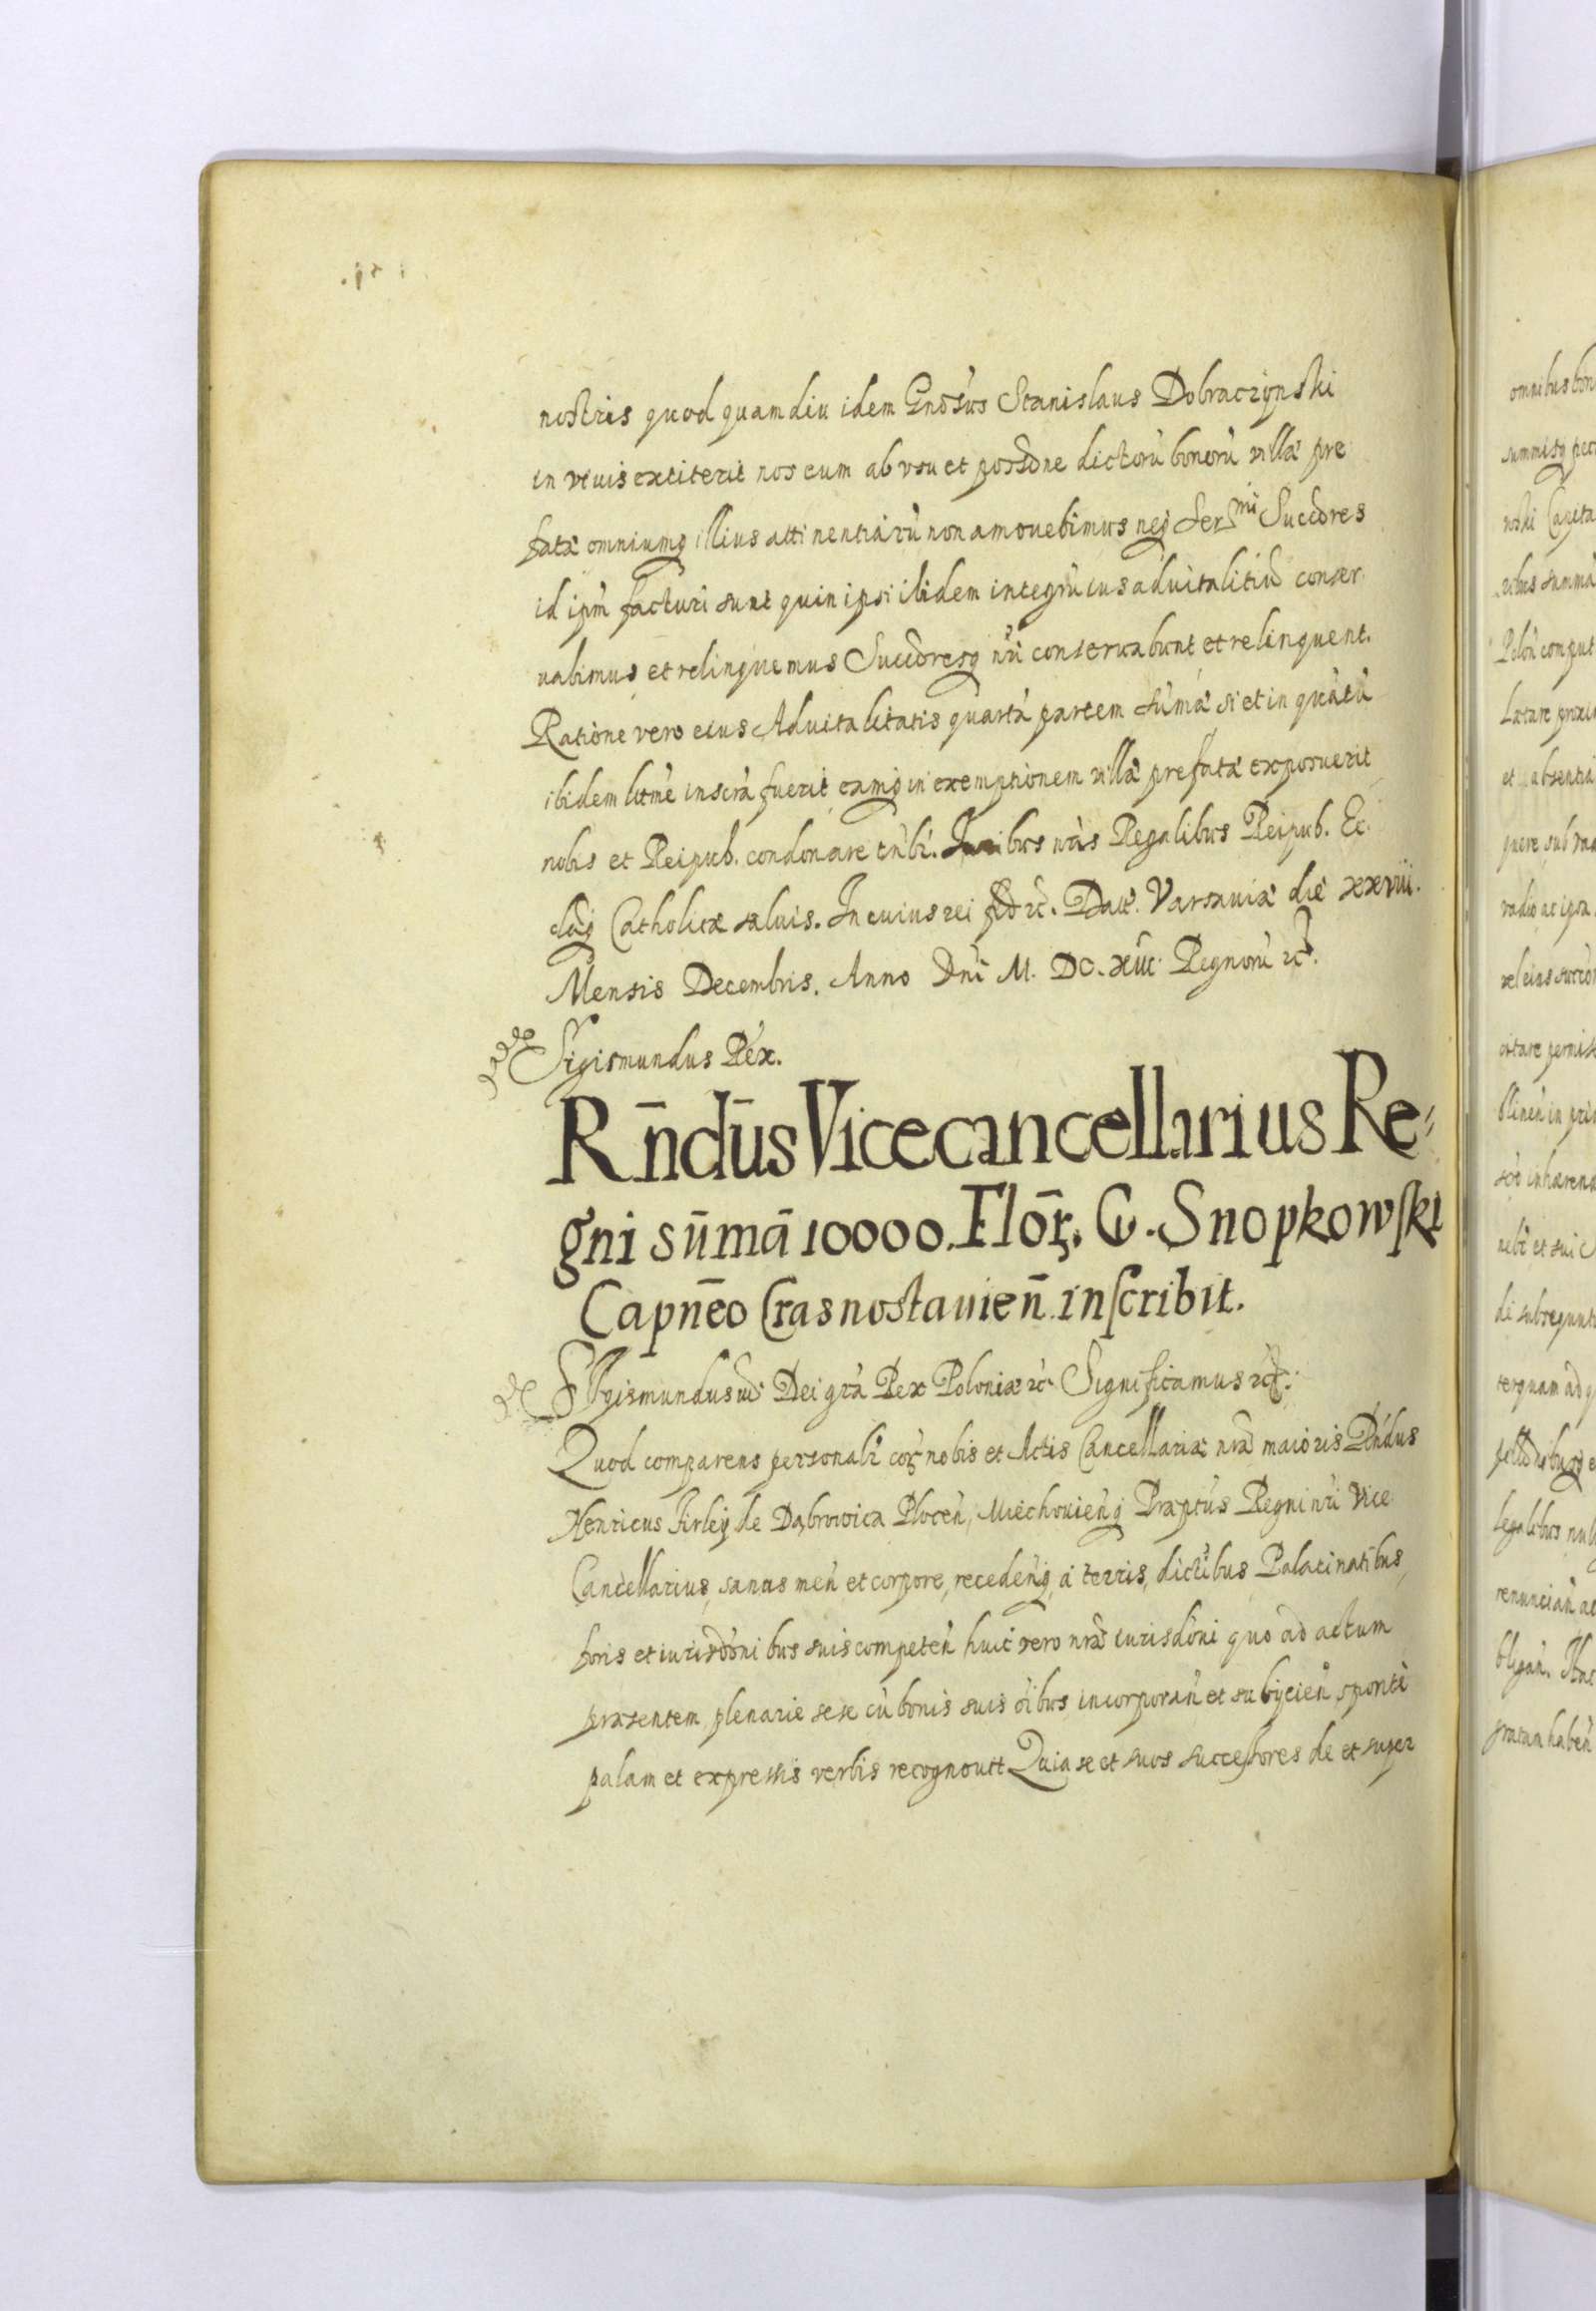 nostris quod quamdiu idem Gnosus Stanislaus Dobraczynski
in vivis extiterit nos eum ab usu et possone dictorũ bonorũ villæ pre
fatæ omniumq illius attinentiarũ non amovebimus neq Sermi Succores
id ipm̃ facturi sunt quin ipsi ibidem integrũ ius advitalitiũ conser
uabimus et relinquemus Succoresq nri conseruabunt et relinquent.
Ratione vero eius Aduitalitatis quartã partem sũmæ si et in quãtũ
ibidem litme inscrã fuerit eamq in exemptionem villæ prefatæ exposuerit
nobis et Reipub. condonare tñbr. Iuribus nris Regalibus Reipub. Ec
clæq Catholicæ saluis. In cuius rei fid rc. Dat. Varsaviæ die xxviii.
Mensis Decembris. Anno Dni M. DC. Regnorũ rc.
Sigismundus Rex.
Rñdũs Vicecancellarius Re-
gni sũmã 10000. Flor. G. Snopkowski
Capñeo Crasnostavieñ inscribit.
Sigismundus iii Dei gra Rex Poloniæ rc. Significamus rc.
Quod comparens personalr cor nobis et Actis Cancellariæ nræ maioris Rndus
Henricus Firley de Dąbrowica Plocen, Miechovienq Præptus Regni nri Vice
Cancellarius, sanus men et corpore, recedenq, a terris, dictibus Palatinatibus,
foris et iurisdonibus suis competen huic vero nræ iurisdoni quo ad actum
præsentem plenarie sese cũ bonis suis oibus incorporan et subijcien sponte
palam et expressis verbis recognouit Quia se et suos successores de et super